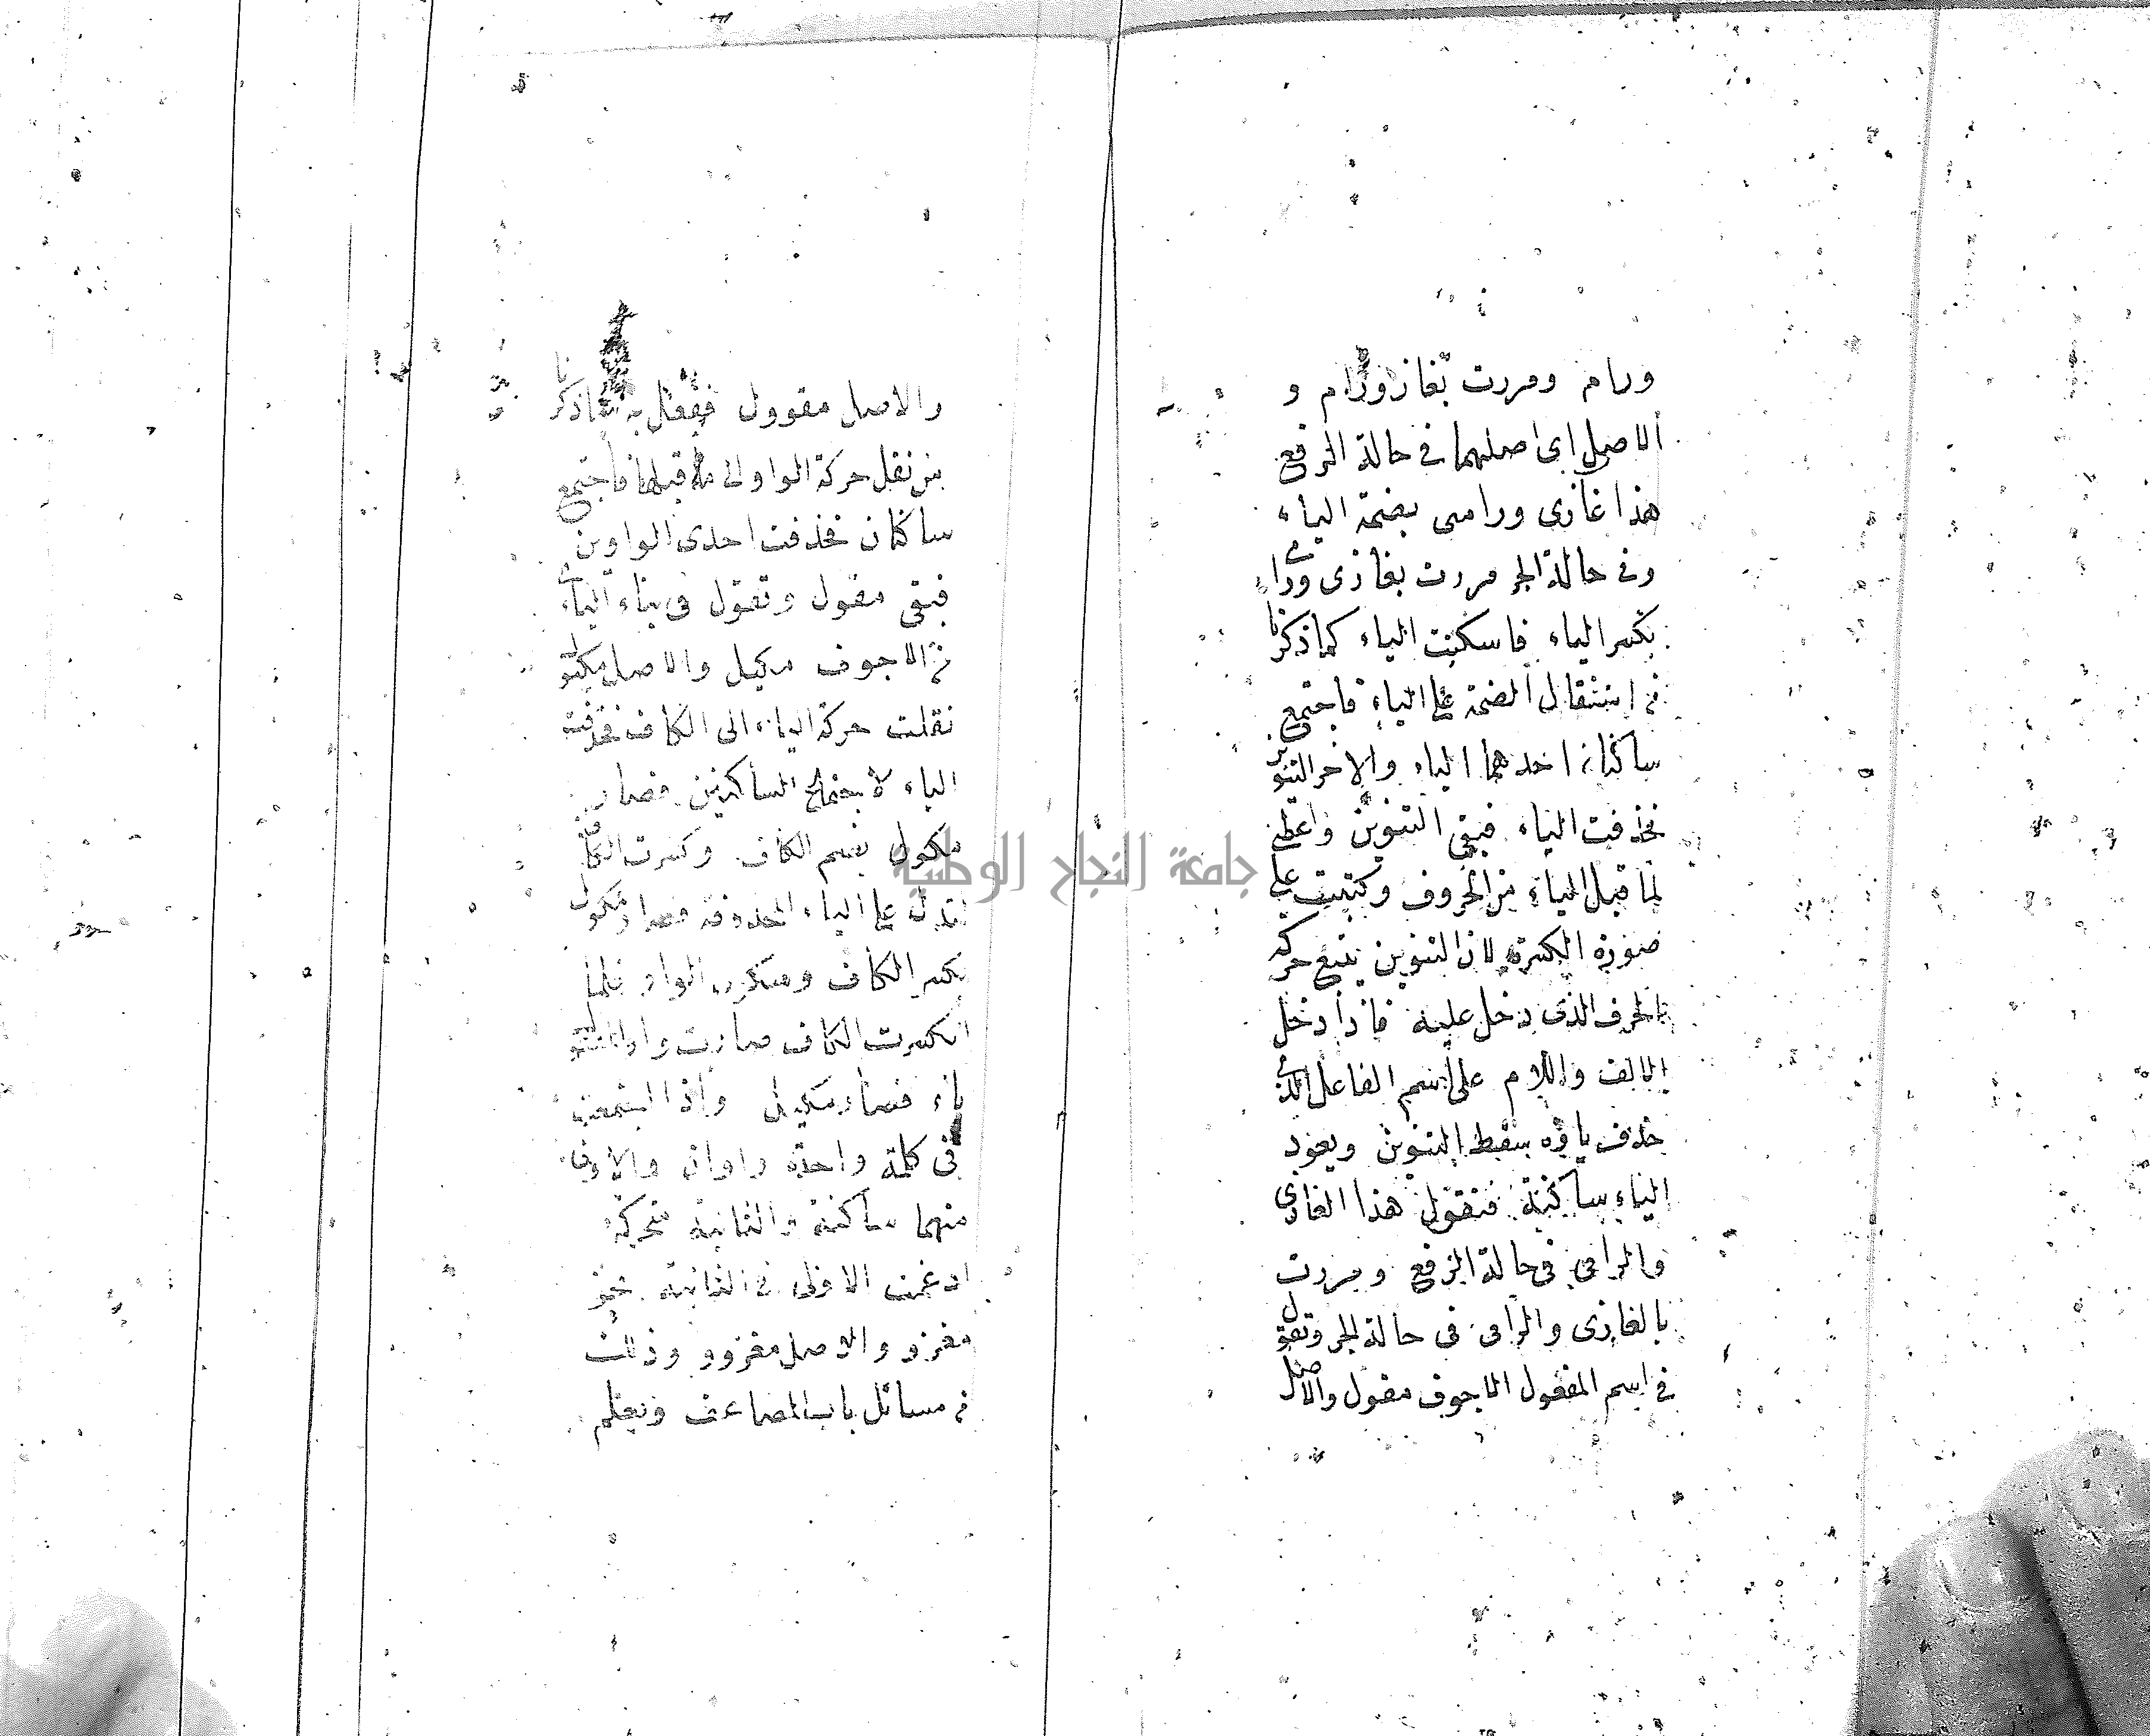 ورام ومررت بغاز ورام و
الاصل اى اصلهما فى حالة الرفع
هذا غازى ورامى بضمة الياء
وفى حالة الجر مررت بغازى ورامى
بكسر الياء فاسكنت الياء كما ذكرنا
من استثقال الضمة على الياء فاجتمع
ساكنان احدهما الياء والاخر التنوين
فحذفت الياء فبقى التنوين واعطى
لما قبل الياء من الحروف وكتبت على
صورة الكسرة لان التنوين يتبع حركة
الحرف الذى دخل عليه فاذا دخل
الالف واللام على اسم الفاعل الذى
حذف ياؤه سقط التنوين ويعود
الياء ساكنة فتقول هذا الغازى
والرامى فى حالة الرفع ومررت
بالغازى والرامى فى حالة الجر وتقول
فى اسم المفعول الاجوف مقول والاصل
والاصل مقوول ففعل به ما ذكرنا
من نقل حركة الواو الى ما قبلها فاجتمع
ساكنان فحذفت احدى الواوين
فبقى مقول وتقول فى بناء اليائى
من الاجوف مكيل والاصل مكيول
نقلت حركة الياء الى الكاف فحذفت
الياء لاجتماع الساكنين فصار
مكول بضم الكاف وكسرت الكاف
لتدل على الياء المحذوفة فصار مكول
بكسر الكاف وسكون الواو فلما
انكسرت الكاف صارت واو المفعول
ياء فصار مكيل واذا اجتمعت
فى كلمة واحدة واوان والاولى
منهما ساكنة والثانية متحركة
ادغمت الاولى فى الثانية نحو
مغزو والاصل مغزوو وذلك
من مسائل باب المضاعف ونعلم
جامعة النجاح الوطنية